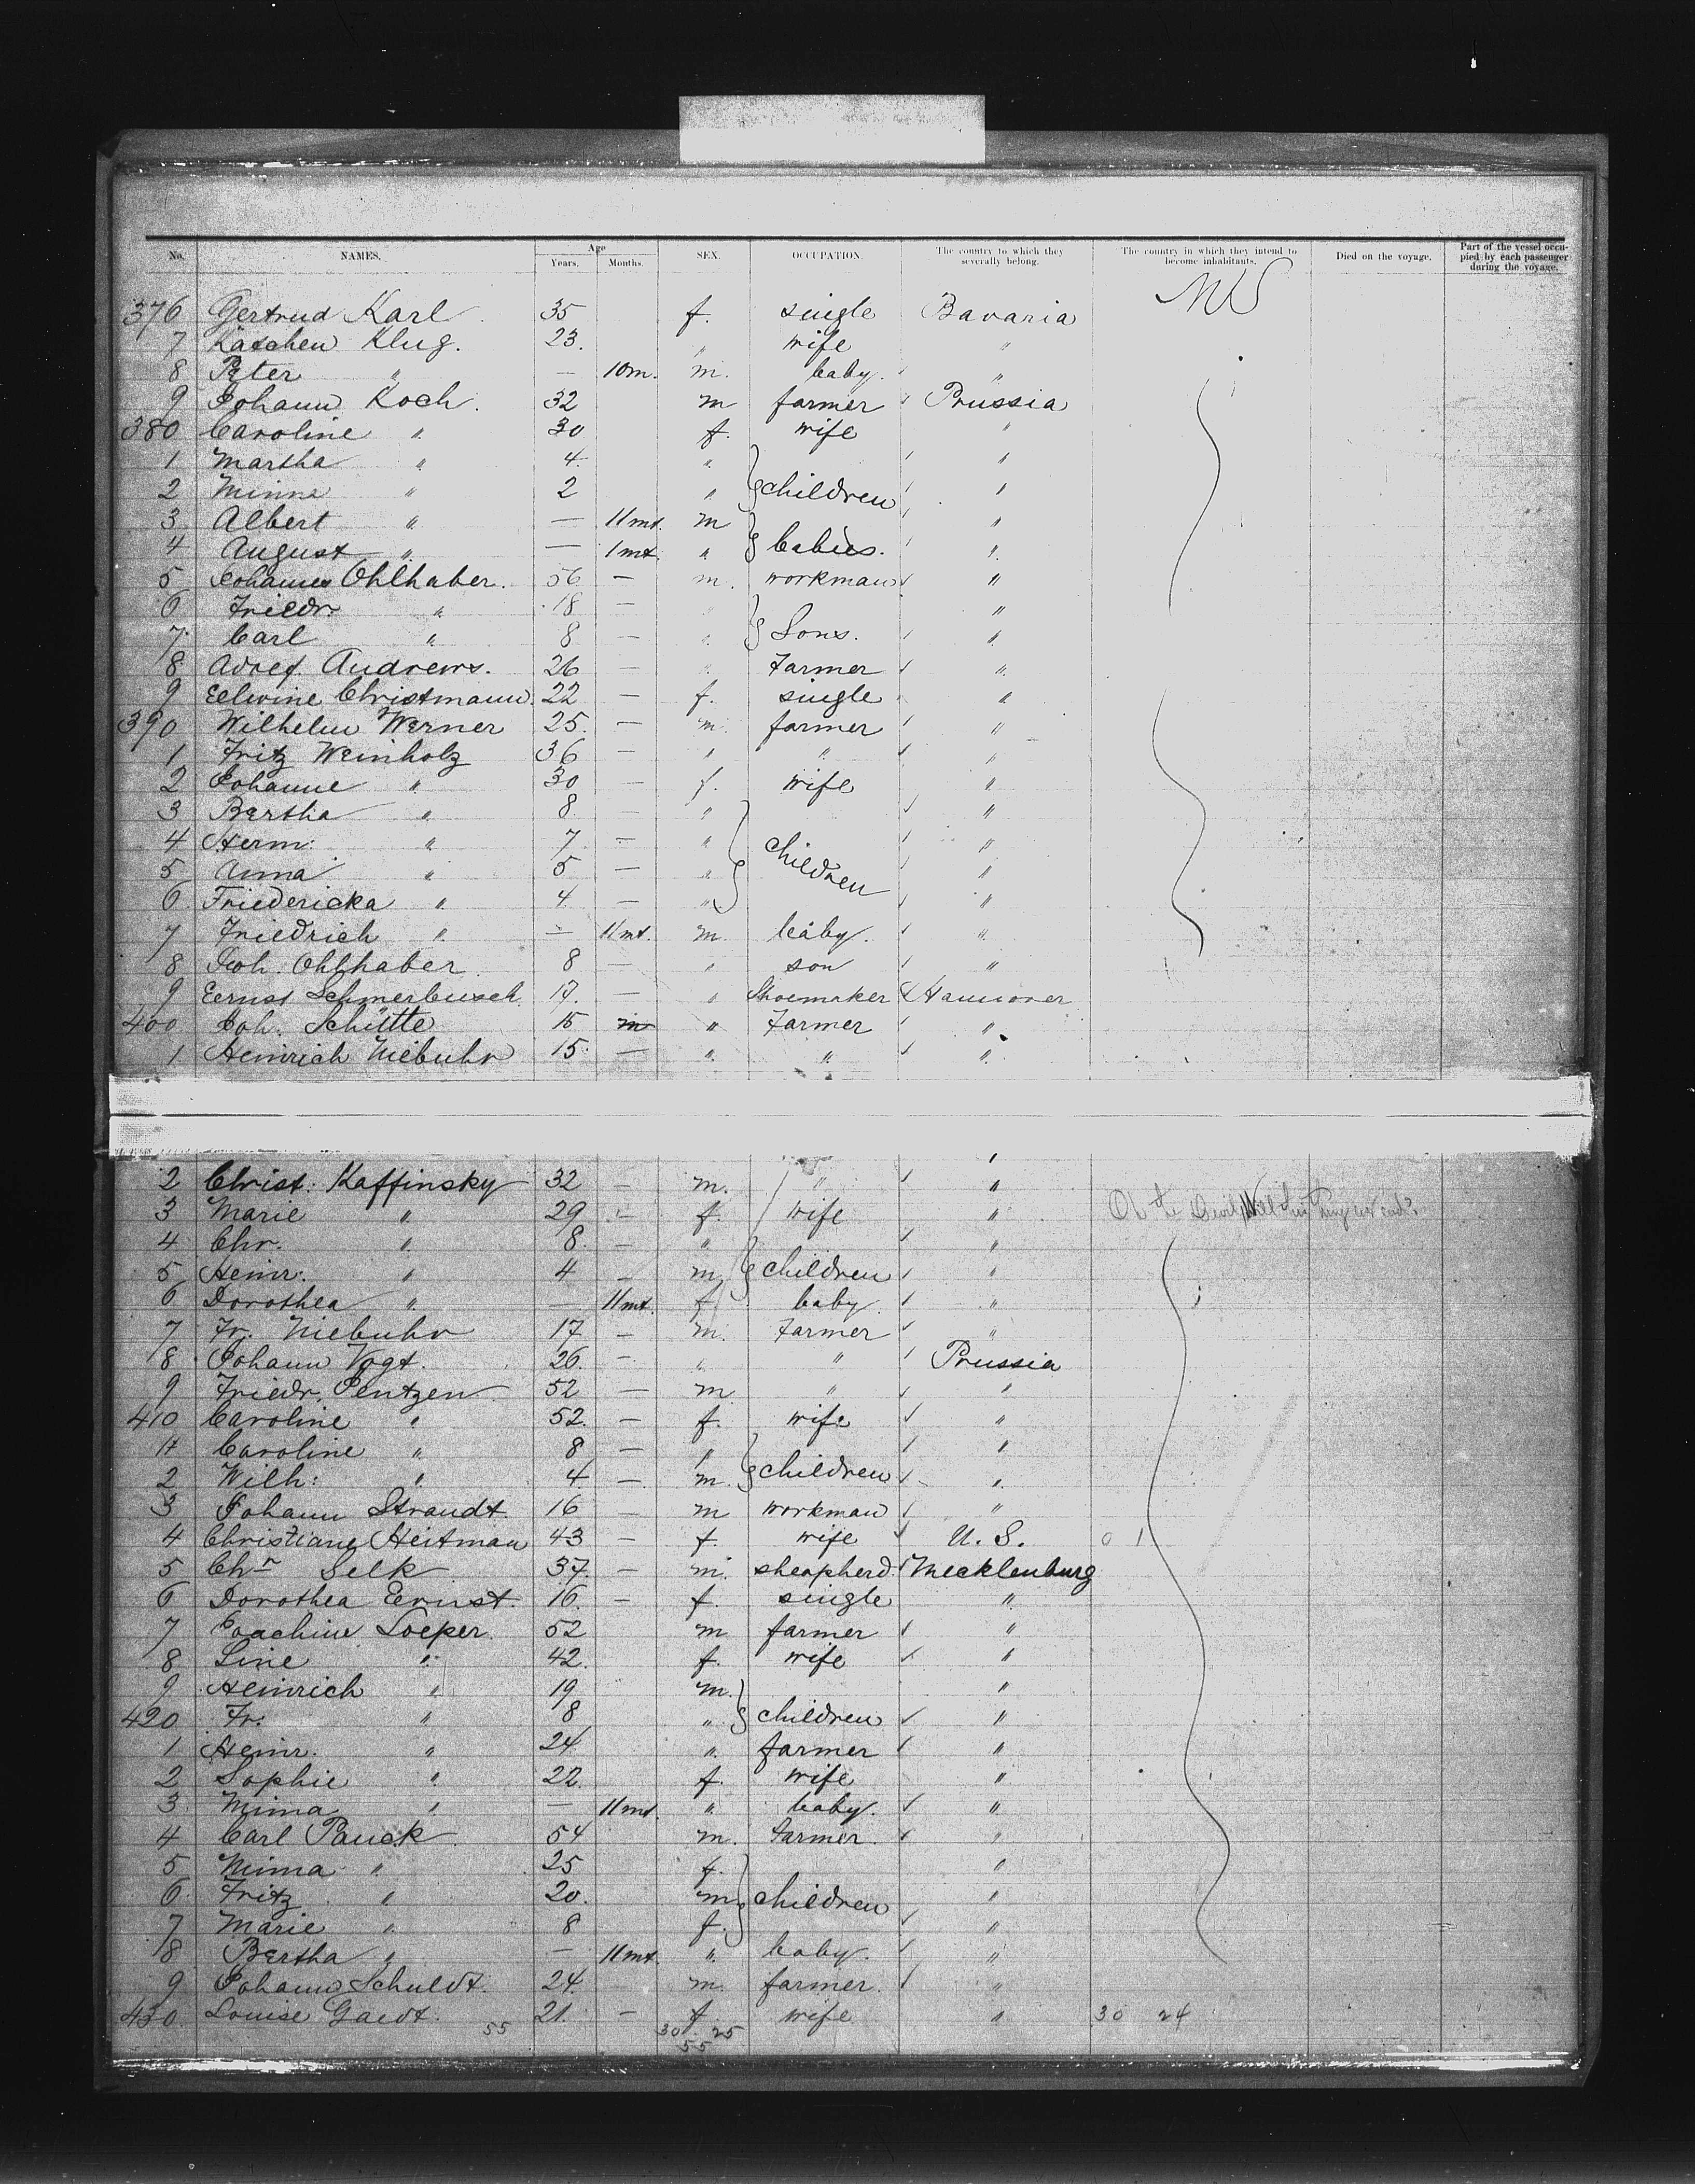 No. NAMES. Age Years. Months. SEX. OCCUPATION. The country to which they severally belong. The country in which they intend to become inhabitants. Died on the voyage. Part of the vessel occupied by each passenger during the voyage.
376 Gertrud Karl 35 f. single Bavaria
7 Kätchen Klug. 23. " wife "
8 Peter " — 10m. m. baby. "
9 Johann Koch. 32 m farmer Prussia
380 Caroline " 30 f. wife "
1 Martha " 4 " "
2 Minna " 2 " children "
3 Albert " — 11mt. m "
4 August " — 1mt. " babies. "
5 Johannes Ohlhaber. 56 — m. workman "
6 Friedr. " 18 — "
7 Carl " 8 — " Sons. "
8 Andrews. 26 — " Farmer "
9 Eelwine Christmann 22 — f. single "
390 Wilhelm Werner 25. — m. farmer "
1 Fritz Weinholz 36 — " " "
2 Johanne " 30 — f. wife "
3 Bertha " 8. — " "
4 Herm: " 7 — " children "
5 Anna " 5 — " "
6 Friedericka " 4 — " "
7 Friedrich " — 11mt. m. baby. "
8 Joh. Ohlhaber 8 — " son "
9 Eernst Schmerbusch 17. — " Shoemaker Hannover
400 Joh. Schütte 15 m " Farmer "
1 Heinrich Niebuhr 15 — " " "
2 Christ: Kaffinsky 32 — m. " "
3 Marie " 29 — f. wife " Oh the Devil, Will this thing ever end?
4 Chr. " 8. — " "
5 Heinr: " 4 — m children "
6 Dorothea " — 11mt. f. baby. "
7 Fr. Niebuhr 17 — m. Farmer "
8 Johann Vogt. 26. — " " Prussia
9 Friedr. Pentzen 52 — m " "
410 Caroline " 52. — f. wife "
11 Caroline " 8 — " "
2 Wilh: " 4 — m. children "
3 Johann Strandt 16 — m workman "
4 Christiane Heitman 43 — f. wife U. S. 0 1
5 Chr Selk 37. — m. sheapherd. Mecklenburg
6 Dorothea Eernst. 16. — f. single "
7 Joachim Loeper 52 m farmer "
8 Line " 42. f. wife "
9 Heinrich " 19 m. "
420 Fr: " 8 " children "
1 Heinr. " 24 " farmer "
2 Sophie " 22. f. wife "
3 Mima " — 11mt. " baby. "
4 Carl Pauck 54 m. Farmer. "
5 Mima " 25 f. "
6 Fritz " 20. m children "
7 Marie " 8 f. "
8 Bertha " — 11mt " baby. "
9 Johann Schuldt. 24. m. farmer. "
430 Louise Gaedt. 55 21. — f wife " 30 24
30 25
55